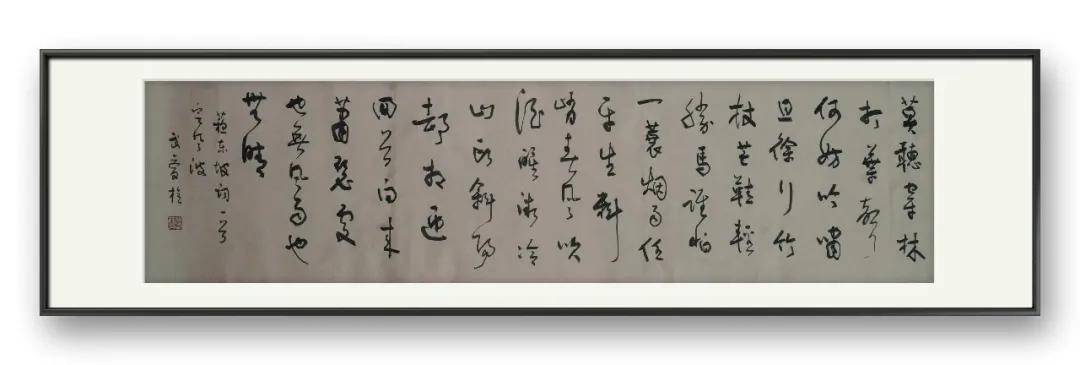 莫聽穿林
打葉聲
何妨吟嘯
且徐行竹
杖芒鞋輕
勝馬誰怕
一蓑烟雨任
平生料
峭春風吹
酒醒微冷
山頭斜陽
却相迎
回首向來
蕭瑟處
也無風雨也
無晴
蘇東坡詞一首
定風波